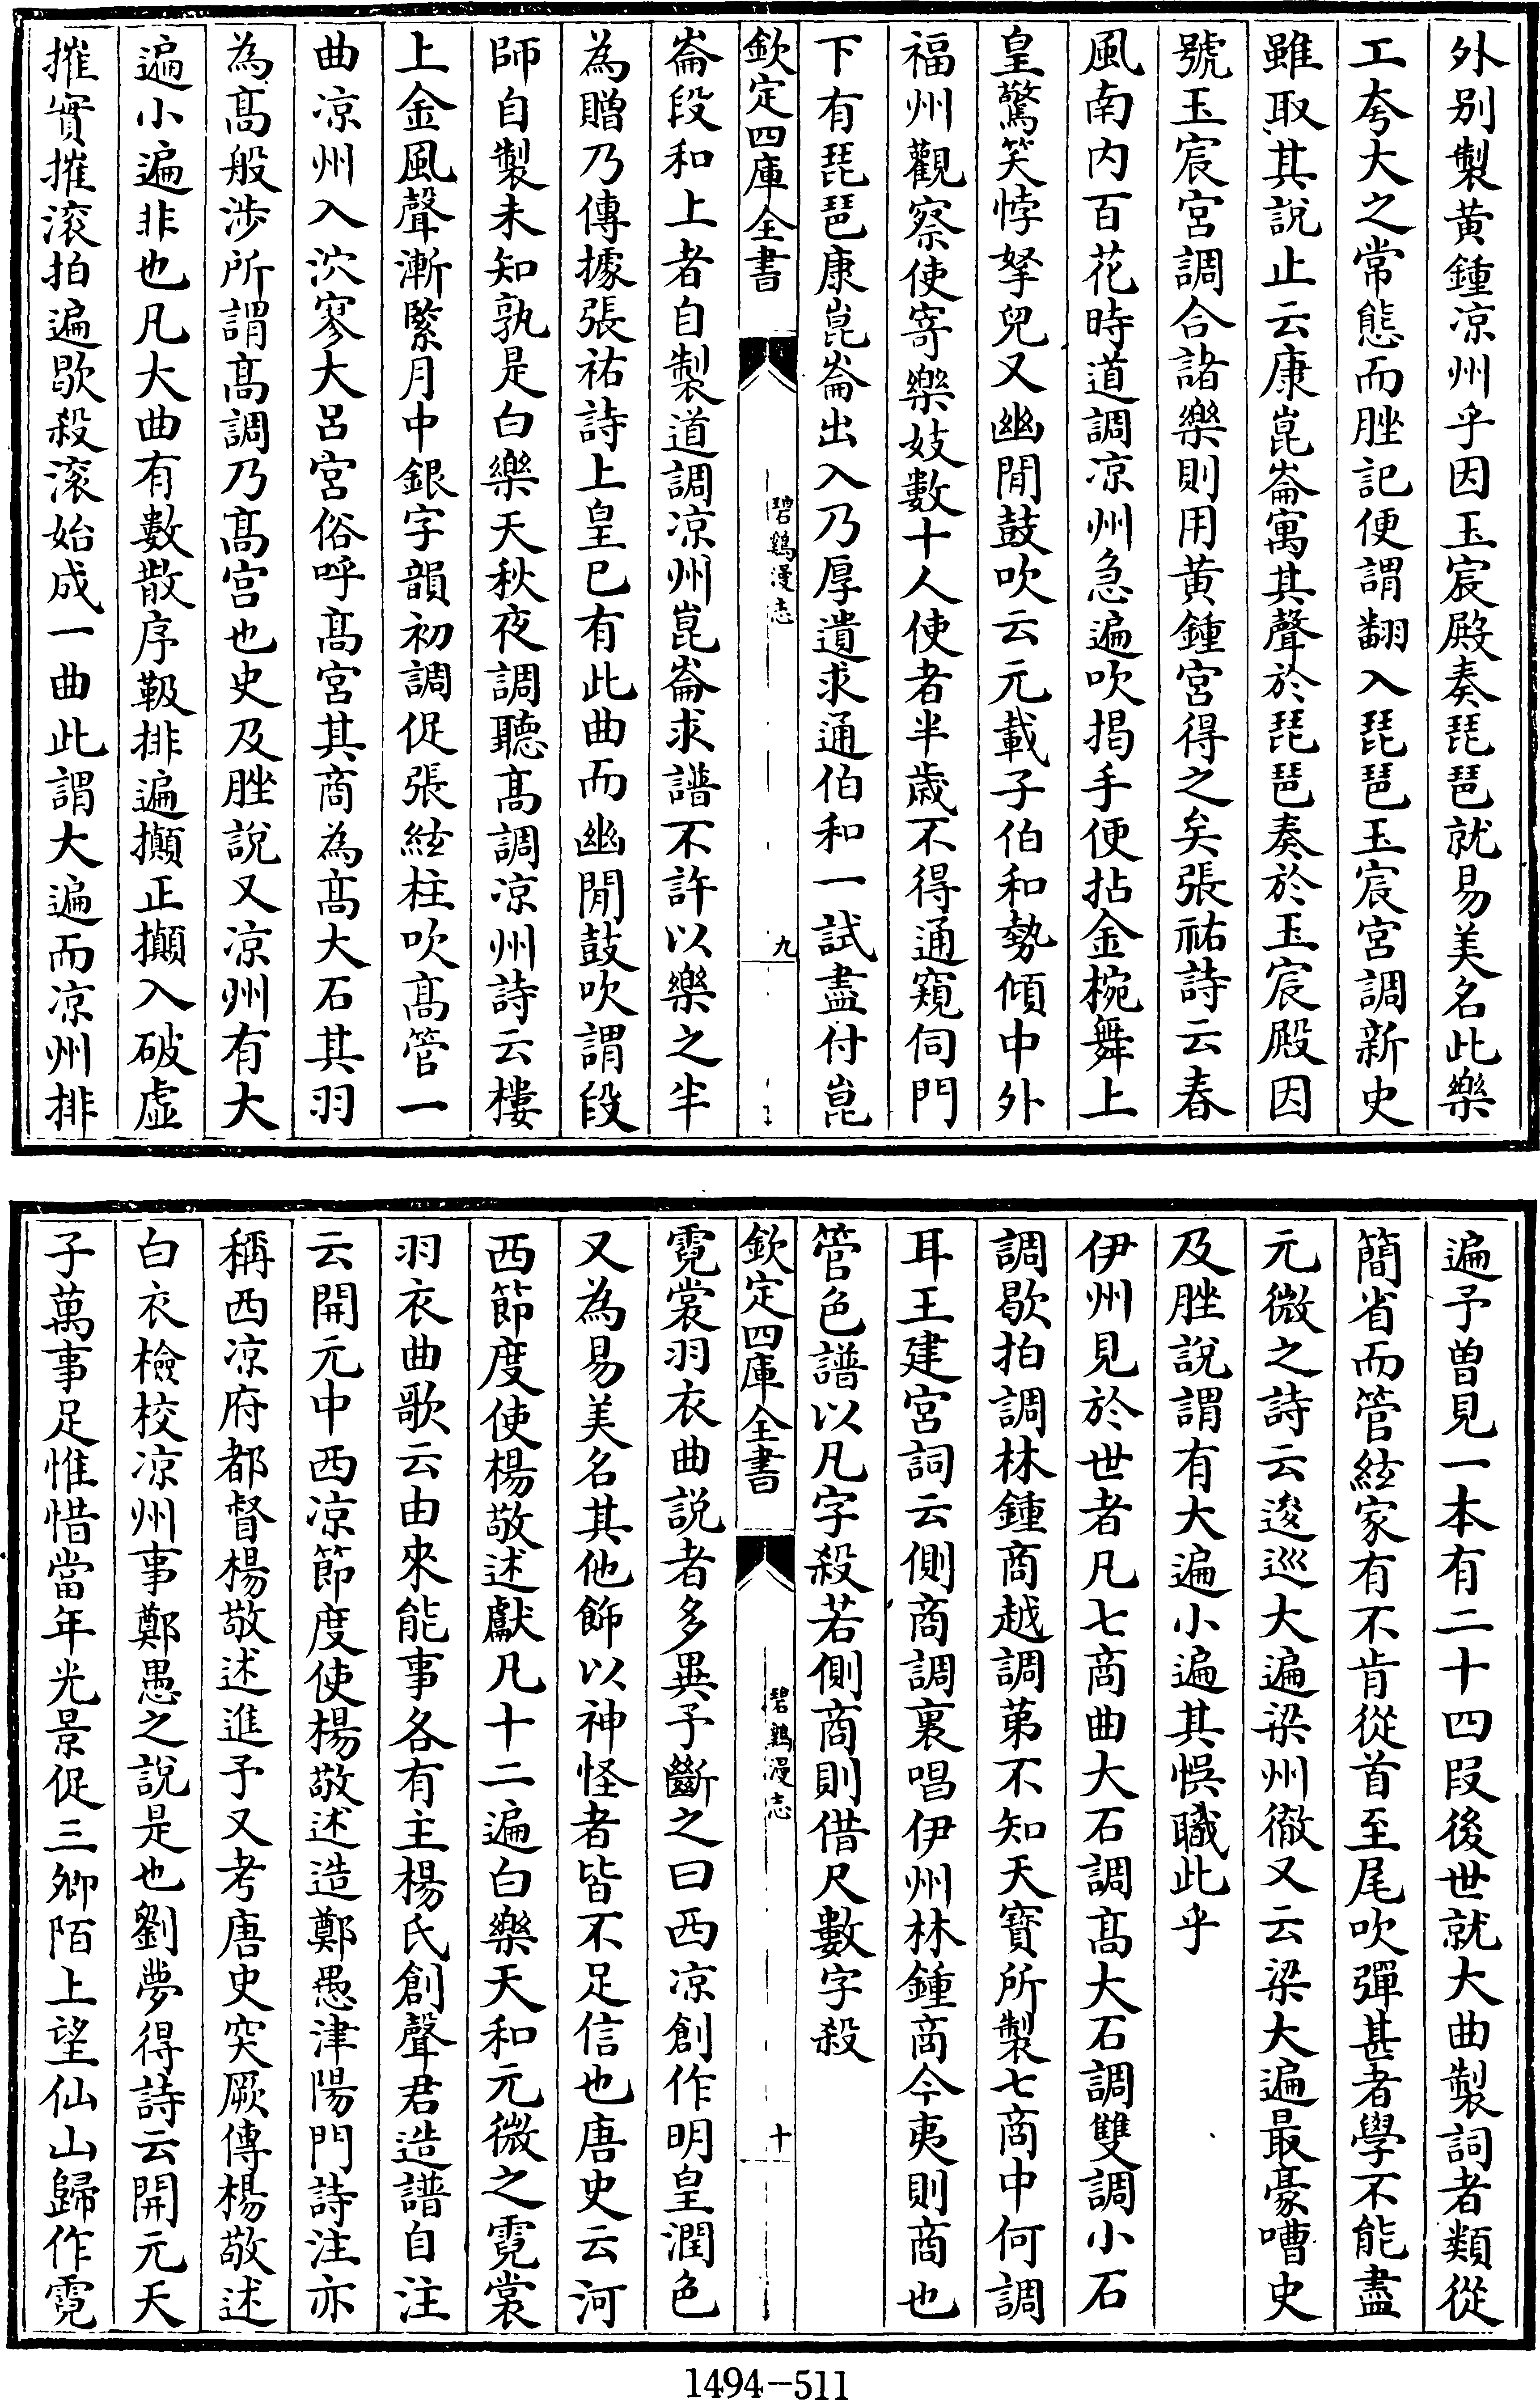 外别製黄鍾凉州乎因玉宸殿奏琵琶就易美名此樂
工夸大之常態而脞記便謂翻入琵琶玉宸宮調新史
雖取其說止云康崑崙寓其聲於琵琶奏於玉宸殿因
號玉宸宮調合諸樂則用黄鍾宮得之矣張祐詩云春
風南内百花時道調凉州急遍吹揭手便拈金椀舞上
皇驚笑悖拏兒又幽閒鼓吹云元載子伯和勢傾中外
福州觀察使寄樂妓數十人使者半歲不得通窺伺門
下有琵琶康崑崙出入乃厚遺求通伯和一試盡付崑
欽定四庫全書
碧鷄漫志
九
崙段和上者自製道調凉州崑崙求譜不許以樂之半
為贈乃傳據張祐詩上皇已有此曲而幽閒鼓吹謂段
師自製未知孰是白樂天秋夜調聽髙調凉州詩云樓
上金風聲漸緊月中銀字韻初調促張絃柱吹髙管一
曲凉州入泬寥大呂宮俗呼髙宮其商為髙大石其羽
為髙般涉所謂髙調乃髙宮也史及脞說又凉州有大
遍小遍非也凡大曲有數散序靸排遍攧正攧入破虛
摧實摧滚拍遍歇殺滚始成一曲此謂大遍而凉州排
遍予曽見一本有二十四段後世就大曲製詞者類從
簡省而管絃家有不肯從首至尾吹彈甚者學不能盡
元微之詩云逡巡大遍梁州徹又云梁大遍最豪嘈史
及脞說謂有大遍小遍其悞職此乎
伊州見於世者凡七商曲大石調髙大石調雙調小石
調歇拍調林鍾商越調苐不知天寶所製七商中何調
耳王建宮詞云側商調裏唱伊州林鍾商今夷則商也
管色譜以凡字殺若側商則借尺數字殺
欽定四庫全書
碧鷄漫志
十
霓裳羽衣曲說者多異予斷之曰西凉創作明皇潤色
又為易美名其他飾以神怪者皆不足信也唐史云河
西節度使楊敬述獻凡十二遍白樂天和元微之霓裳
羽衣曲歌云由來能事各有主楊氏創聲君造譜自注
云開元中西凉節度使楊敬述造鄭愚津陽門詩注亦
稱西凉府都督楊敬述進予又考唐史突厥傳楊敬述
白衣檢校凉州事鄭愚之說是也劉夢得詩云開元天
子萬事足惟惜當年光景促三鄉陌上望仙山歸作霓
1494-511